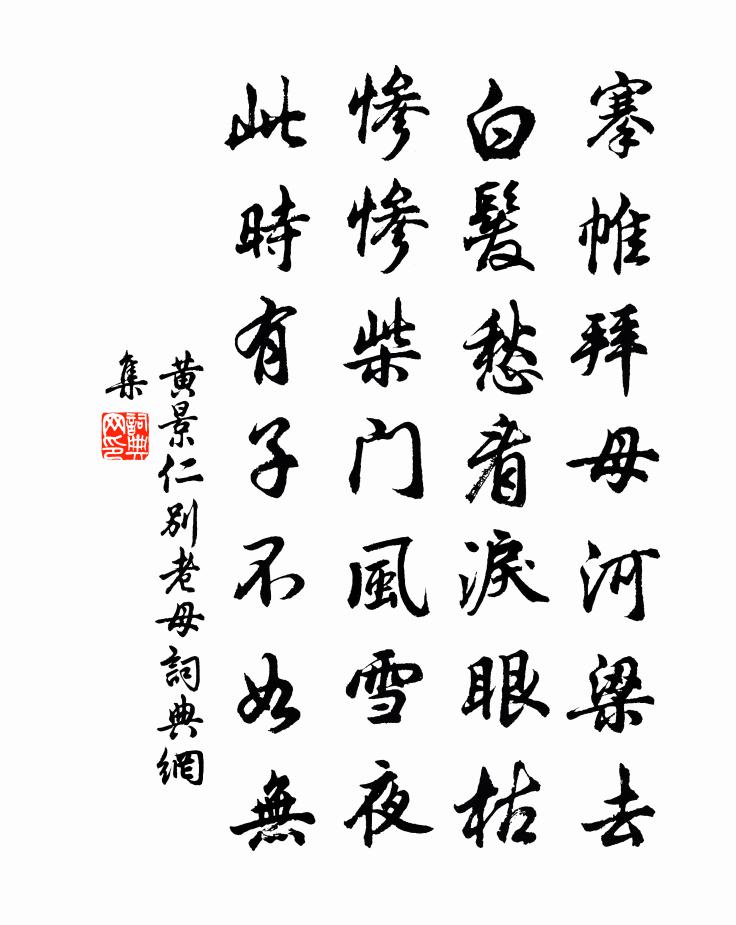 搴帷拜母河梁去
白髮愁看淚眼枯
慘慘柴门風雪夜
此時有子不如無
黄景仁别老母詞典網
集
詞典網印